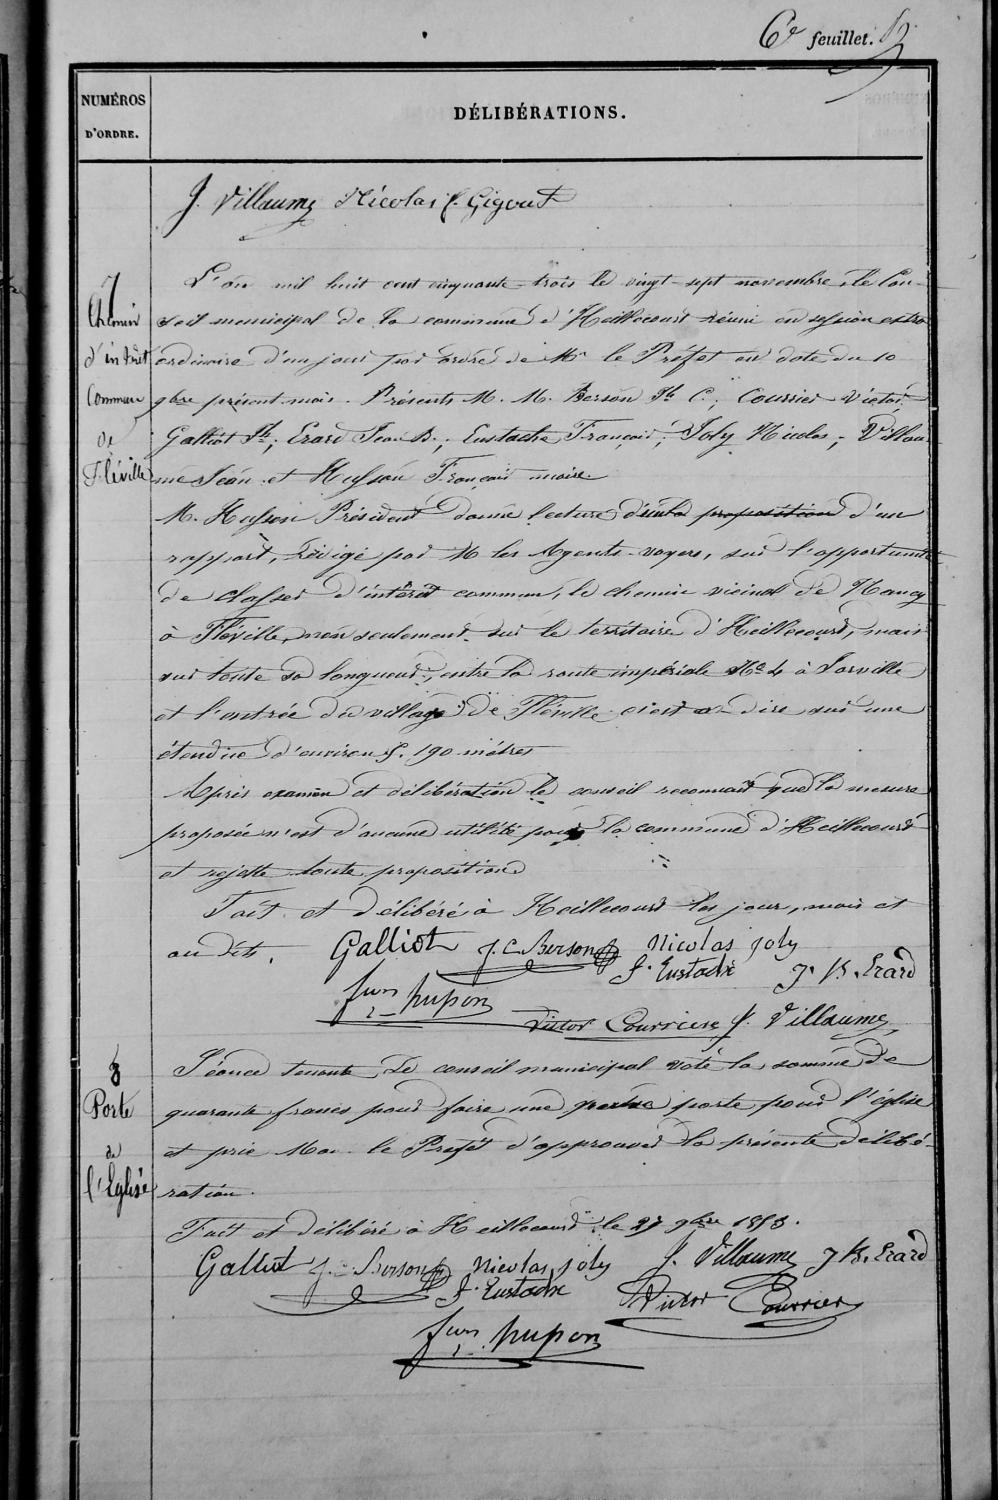 6e feuillet.
NUMÉROS D'ORDRE.
DÉLIBÉRATIONS.
J. Villaume Nicolas f. Gigout
7
Chemin
d'intérêt
Commun
de
Fléville
L'an mil huit cent cinquante-trois le vingt-sept novembre, le Con-
seil municipal de la commune d'Heillecourt réuni en session extra
ordinaire d'un jour par ordre de Mr le Préfet en date du 10
9bre présent mois. Présents M. M. Berson Jh C.; Courrier Victor;
Galliot Jh; Erard Jean B.; Eustache François; Joly Nicolas; Villau
me Jean et Husson François maire
M. Husson Président donne lecture d'une proposition d'un
rapport, rédigé par M les Agents-voyers, sur l'opportunité
de classer d'intérêt commun, le chemin vicinal de Nancy
à Fléville, non seulement sur le territoire d'Heillecourt, mais
sur toute sa longueur, entre la route impériale No 4 à Jarville
et l'entrée du village de Fléville c'est-à-dire sur une
étendue d'environ 5.190 mètres
Après examen et délibération le conseil reconnait que la mesure
proposée n'est d'aucune utilité pour la commune d'Heillecourt
et rejette toute proposition
Fait et délibéré à Heillecourt les jour, mois et
an dits.
Galliot J. C Berson Nicolas joly
f. Eustache J. B. Erard
fcois husson
Victor Courrier J. Villaume
8
Porte
de
l'Eglise
Séance tenante Le conseil municipal vote la somme de
quarante francs pour faire une porte pour l'église
et prie Mr le Préfet d'approuver la présente délibé-
ration.
Fait et délibéré à Heillecourt le 27 9bre 1853.
Galliot J. C Berson Nicolas joly J. Villaume J B. Erard
f. Eustache Victor Courrier
fcois husson